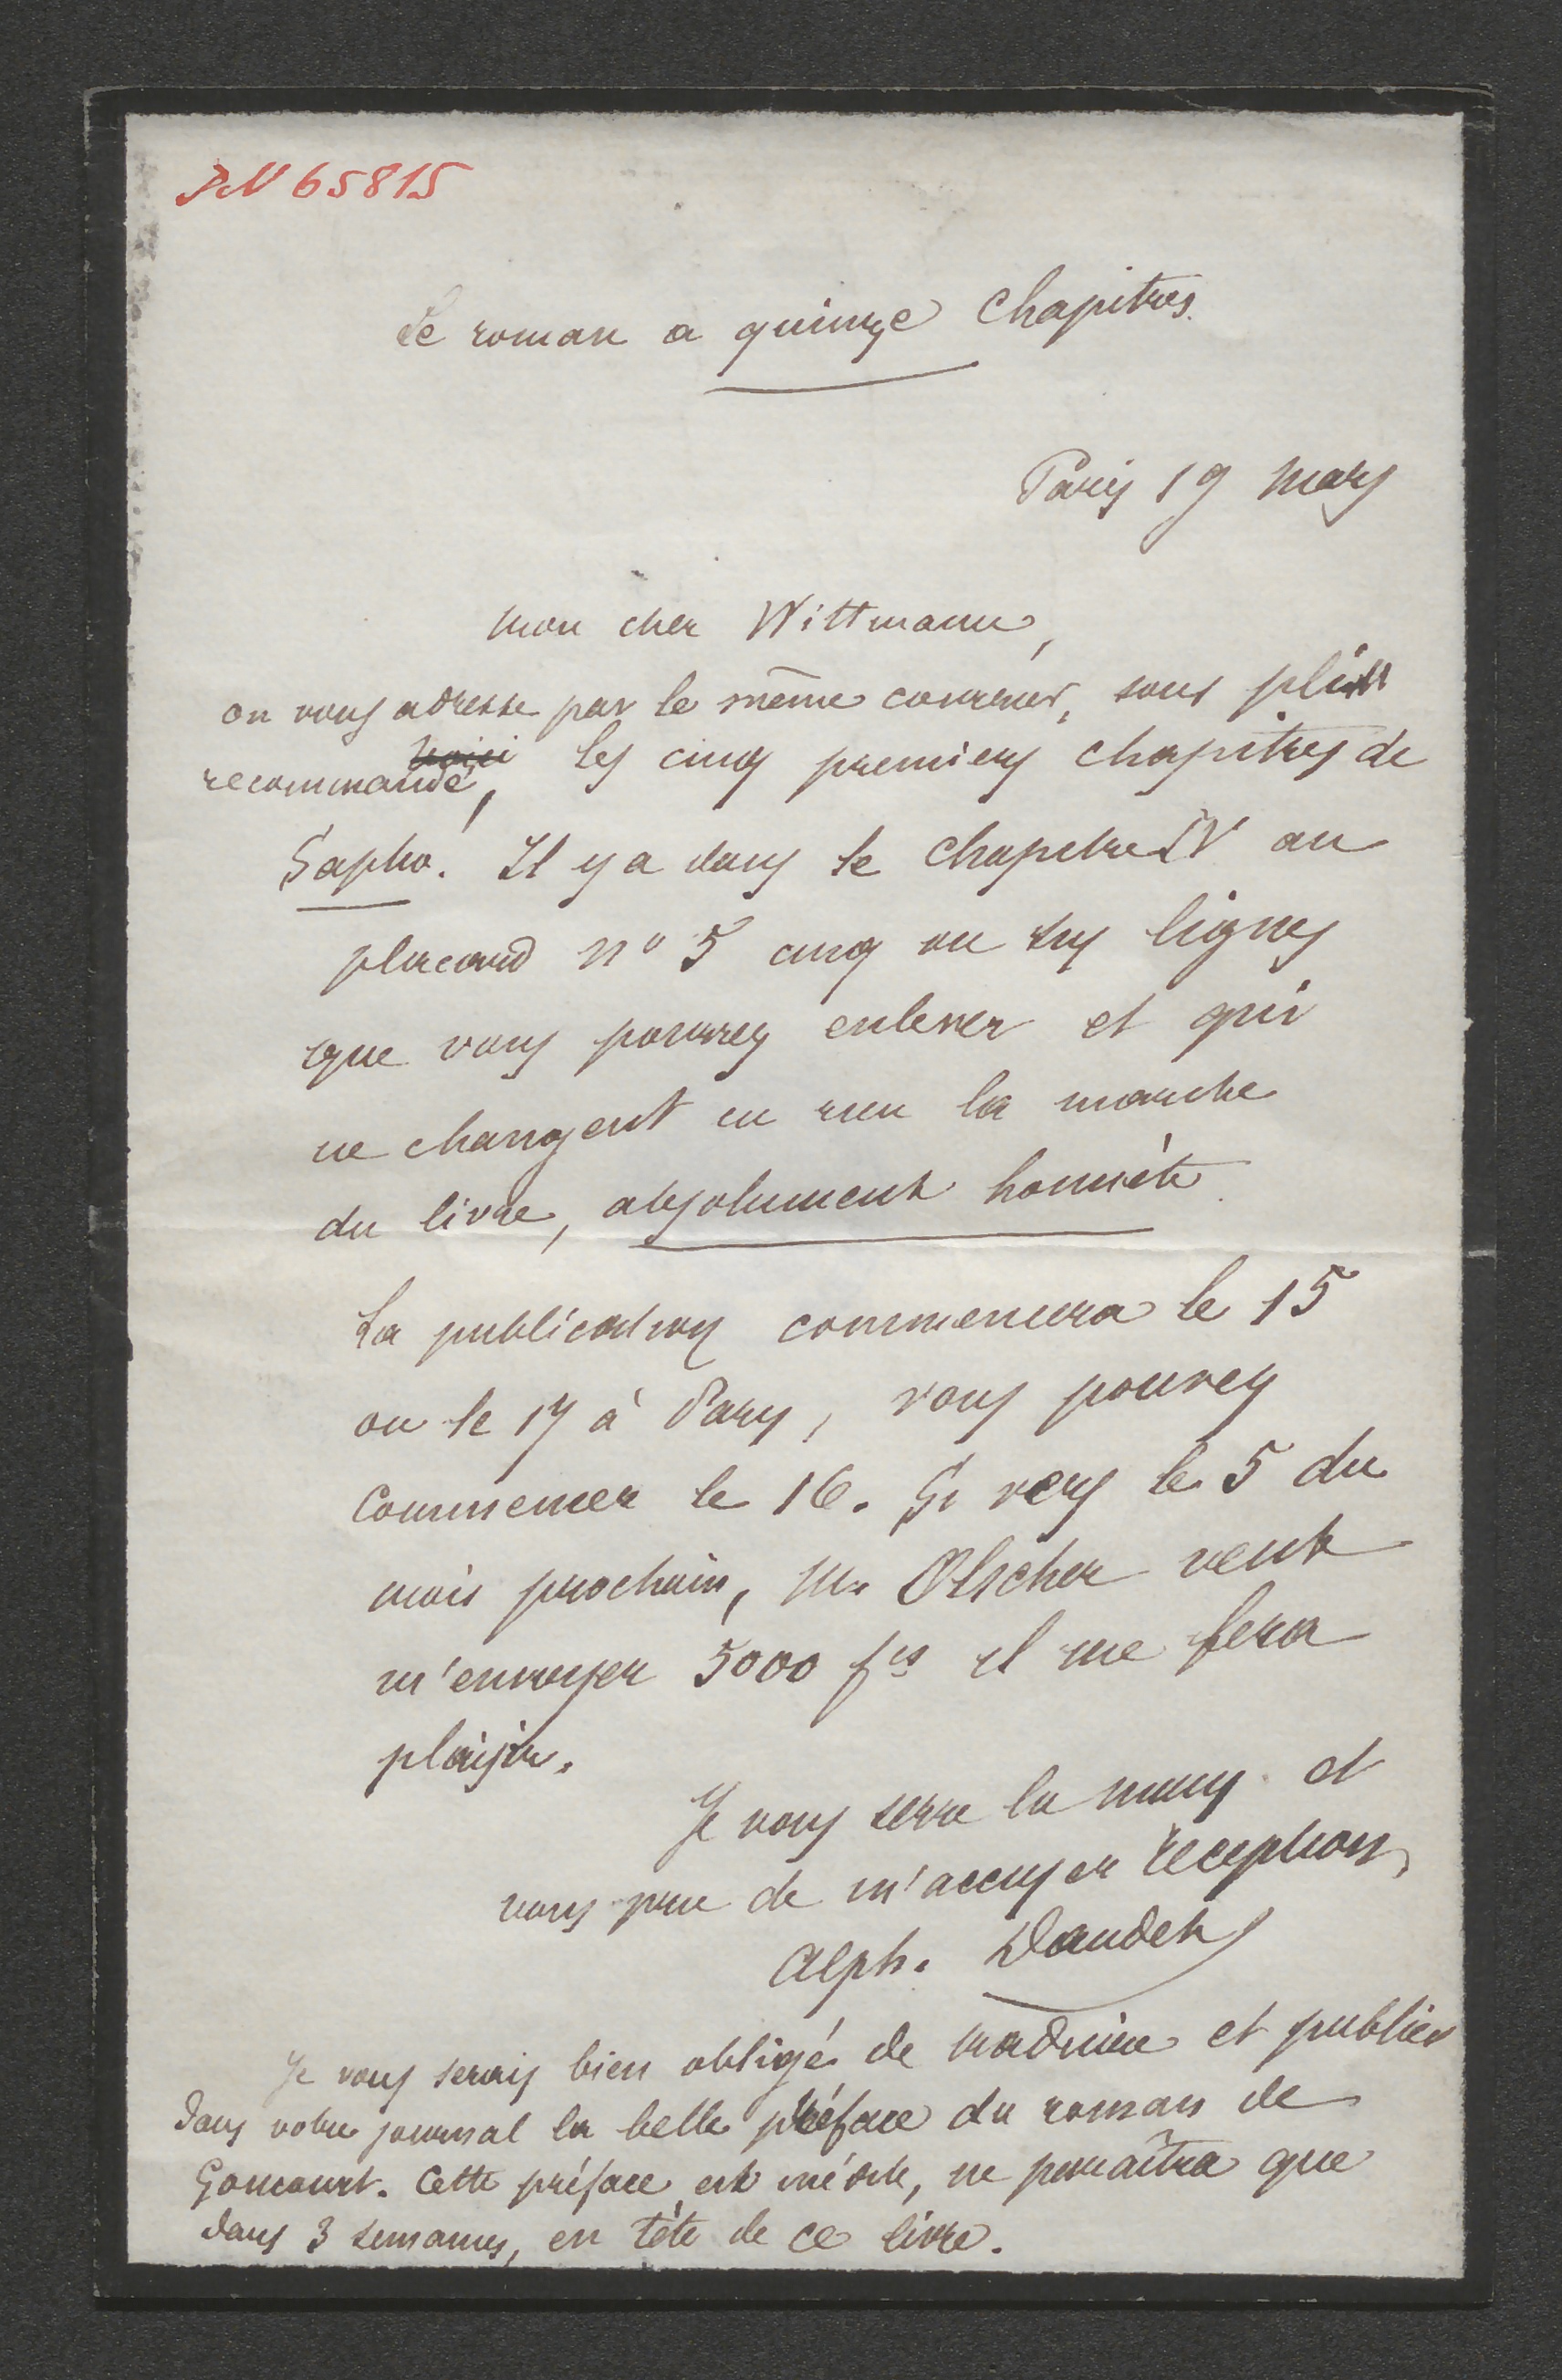 JN 65815
Le roman a quinze chapitres.
Paris 19 mars
Mon cher Wittmann,
on vous adresse par le même courrier, sous plis
recommandé, voici les cinq premiers chapitres de
Sapho. Il y a dans le chapitre IV au
placard nº 5 cinq ou six lignes
que vous pourrez enlever et qui
ne changent en rien la marche
du livre, absolument honnête.
La publication commencera le 15
ou le 17 à Paris, vous pouvez
commencer le 16. Si vers le 5 du
mois prochain, Mr. Olscher veut
m'envoyer 5000 fcs il me fera
plaisir.
Je vous serre la main et
vous prie de m'accuser réception,
Alph. Daudet
Je vous serais bien obligé de traduire et publier
dans votre journal la belle préface du roman de
Goncourt. Cette préface est inédite, ne paraîtra que
dans 3 semaines, en tête de ce livre.